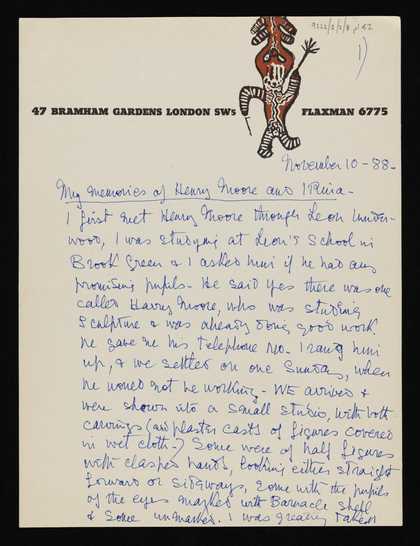 9222/2/2/8 p152
1)
47 BRAMHAM GARDENS LONDON SW5 FLAXMAN 6775
November 10-88-
My memories of Henry Moore and Irina-
I first met Henry Moore through Leon Under-
wood, I was studying at Leon's School in
Brook Green & I asked him if he had any
promising pupils- He said yes there was one
called Harry Moore, who was studing
sculpture & was already doing good work
he gave me his telephone No. I rang him
up, & we settled on one Sunday, when
he would not be working- WE arrived &
were shown into a small studio, with both
carvings (and plaster casts of figures covered
in wet cloth.) Some were of half figures
with clasped hands, looking either straight
forward or sideways, some with the pupils
of the eyes marked with Barnacle shell
& some unmarked. I was greatly taken